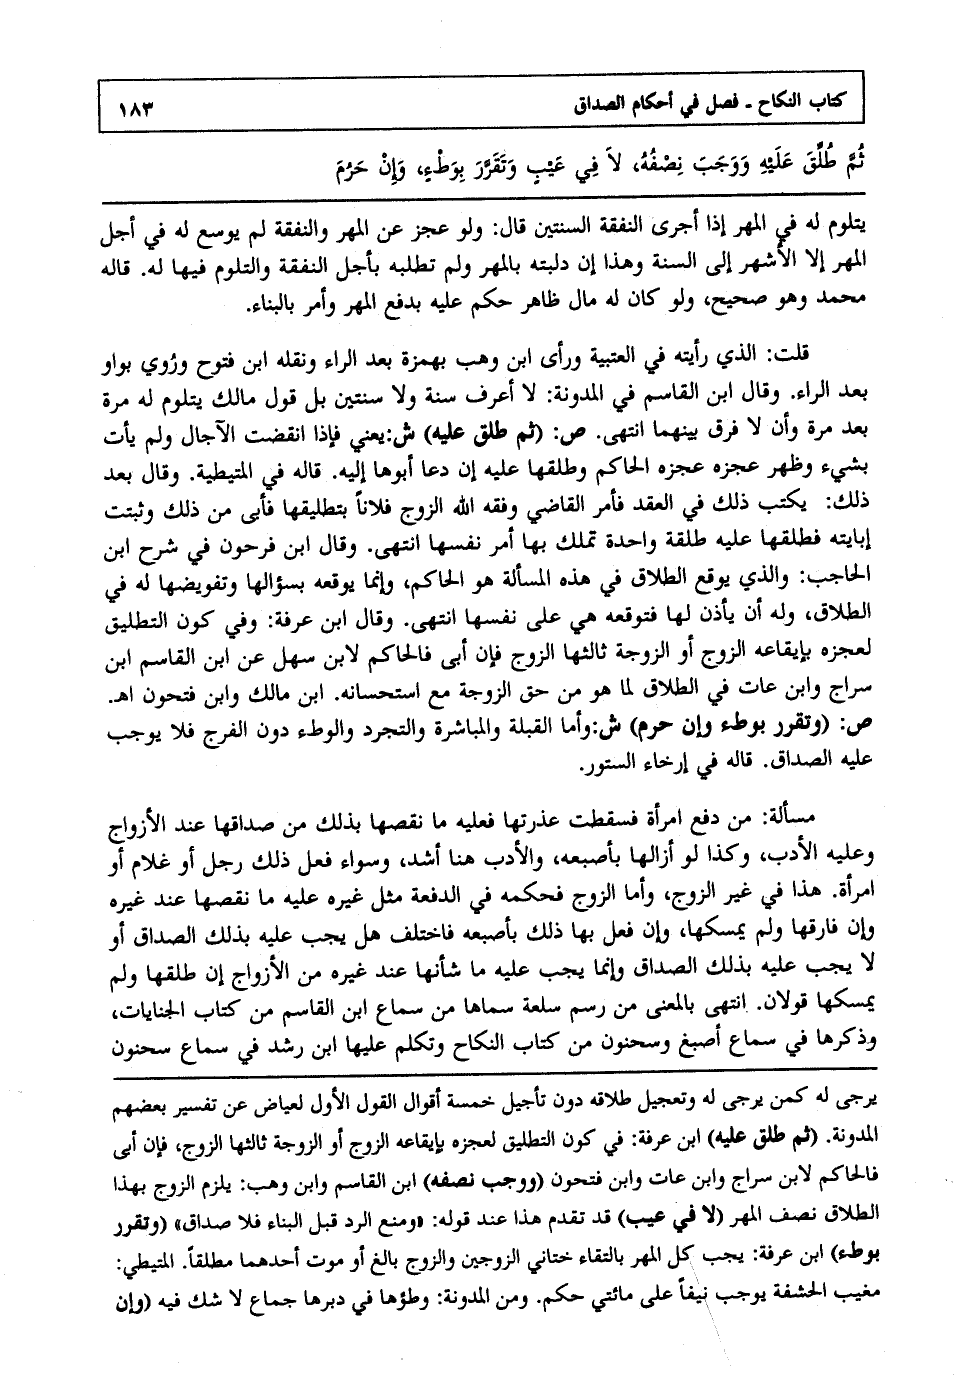 كتاب النكاح ـ فصل في أحكام الصداق ١٨٣
ثُمَّ طُلِّقَ عَلَيْهِ وَوَجَبَ نِصْفُهُ، لاَ فِي عَيْبٍ وَتَقَرَّرَ بِوَطْءٍ، وَإِنْ حَرُمَ
يتلوم له في المهر إذا أجرى النفقة السنتين قال: ولو عجز عن المهر والنفقة لم يوسع له في أجل
المهر إلا الأشهر إلى السنة وهذا إن دلبته بالمهر ولم تطلبه بأجل النفقة والتلوم فيها له. قاله
محمد وهو صحيح، ولو كان له مال ظاهر حكم عليه بدفع المهر وأمر بالبناء.
قلت: الذي رأيته في العتبية ورأى ابن وهب بهمزة بعد الراء ونقله ابن فتوح ورُوي بواو
بعد الراء. وقال ابن القاسم في المدونة: لا أعرف سنة ولا سنتين بل قول مالك يتلوم له مرة
بعد مرة وأن لا فرق بينهما انتهى. ص: (ثم طلق عليه) ش:يعني فإذا انقضت الآجال ولم يأت
بشيء وظهر عجزه عجزه الحاكم وطلقها عليه إن دعا أبوها إليه. قاله في المتيطية. وقال بعد
ذلك: يكتب ذلك في العقد فأمر القاضي وفقه الله الزوج فلاناً بتطليقها فأبى من ذلك وثبتت
إبايته فطلقها عليه طلقة واحدة تملك بها أمر نفسها انتهى. وقال ابن فرحون في شرح ابن
الحاجب: والذي يوقع الطلاق في هذه المسألة هو الحاكم، وإنما يوقعه بسؤالها وتفويضها له في
الطلاق، وله أن يأذن لها فتوقعه هي على نفسها انتهى. وقال ابن عرفة: وفي كون التطليق
لعجزه بإيقاعه الزوج أو الزوجة ثالثها الزوج فإن أبى فالحاكم لابن سهل عن ابن القاسم ابن
سراج وابن عات في الطلاق لما هو من حق الزوجة مع استحسانه. ابن مالك وابن فتحون اهـ.
ص: (وتقرر بوطء وإن حرم) ش:وأما القبلة والمباشرة والتجرد والوطء دون الفرج فلا يوجب
عليه الصداق. قاله في إرخاء الستور.
مسألة: من دفع امرأة فسقطت عذرتها فعليه ما نقصها بذلك من صداقها عند الأزواج
وعليه الأدب، وكذا لو أزالها بأصبعه، والأدب هنا أشد، وسواء فعل ذلك رجل أو غلام أو
امرأة. هذا في غير الزوج، وأما الزوج فحكمه في الدفعة مثل غيره عليه ما نقصها عند غيره
وإن فارقها ولم يمسكها، وإن فعل بها ذلك بأصبعه فاختلف هل يجب عليه بذلك الصداق أو
لا يجب عليه بذلك الصداق وإنما يجب عليه ما شأنها عند غيره من الأزواج إن طلقها ولم
يمسكها قولان. انتهى بالمعنى من رسم سلعة سماها من سماع ابن القاسم من كتاب الجنايات،
وذكرها في سماع أصبغ وسحنون من كتاب النكاح وتكلم عليها ابن رشد في سماع سحنون
يرجى له كمن يرجى له وتعجيل طلاقه دون تأجيل خمسة أقوال القول الأول لعياض عن تفسير بعضهم
المدونة. (ثم طلق عليه) ابن عرفة: في كون التطليق لعجزه بإيقاعه الزوج أو الزوجة ثالثها الزوج، فإن أبى
فالحاكم لابن سراج وابن عات وابن فتحون (ووجب نصفه) ابن القاسم وابن وهب: يلزم الزوج بهذا
الطلاق نصف المهر (لا في عيب) قد تقدم هذا عند قوله: «ومنع الرد قبل البناء فلا صداق» (وتقرر
بوطء) ابن عرفة: يجب كل المهر بالتقاء ختاني الزوجين والزوج بالغ أو موت أحدهما مطلقاً. المتيطي:
مغيب الحشفة يوجب نيفاً على مائتي حكم. ومن المدونة: وطؤها في دبرها جماع لا شك فيه (وإن